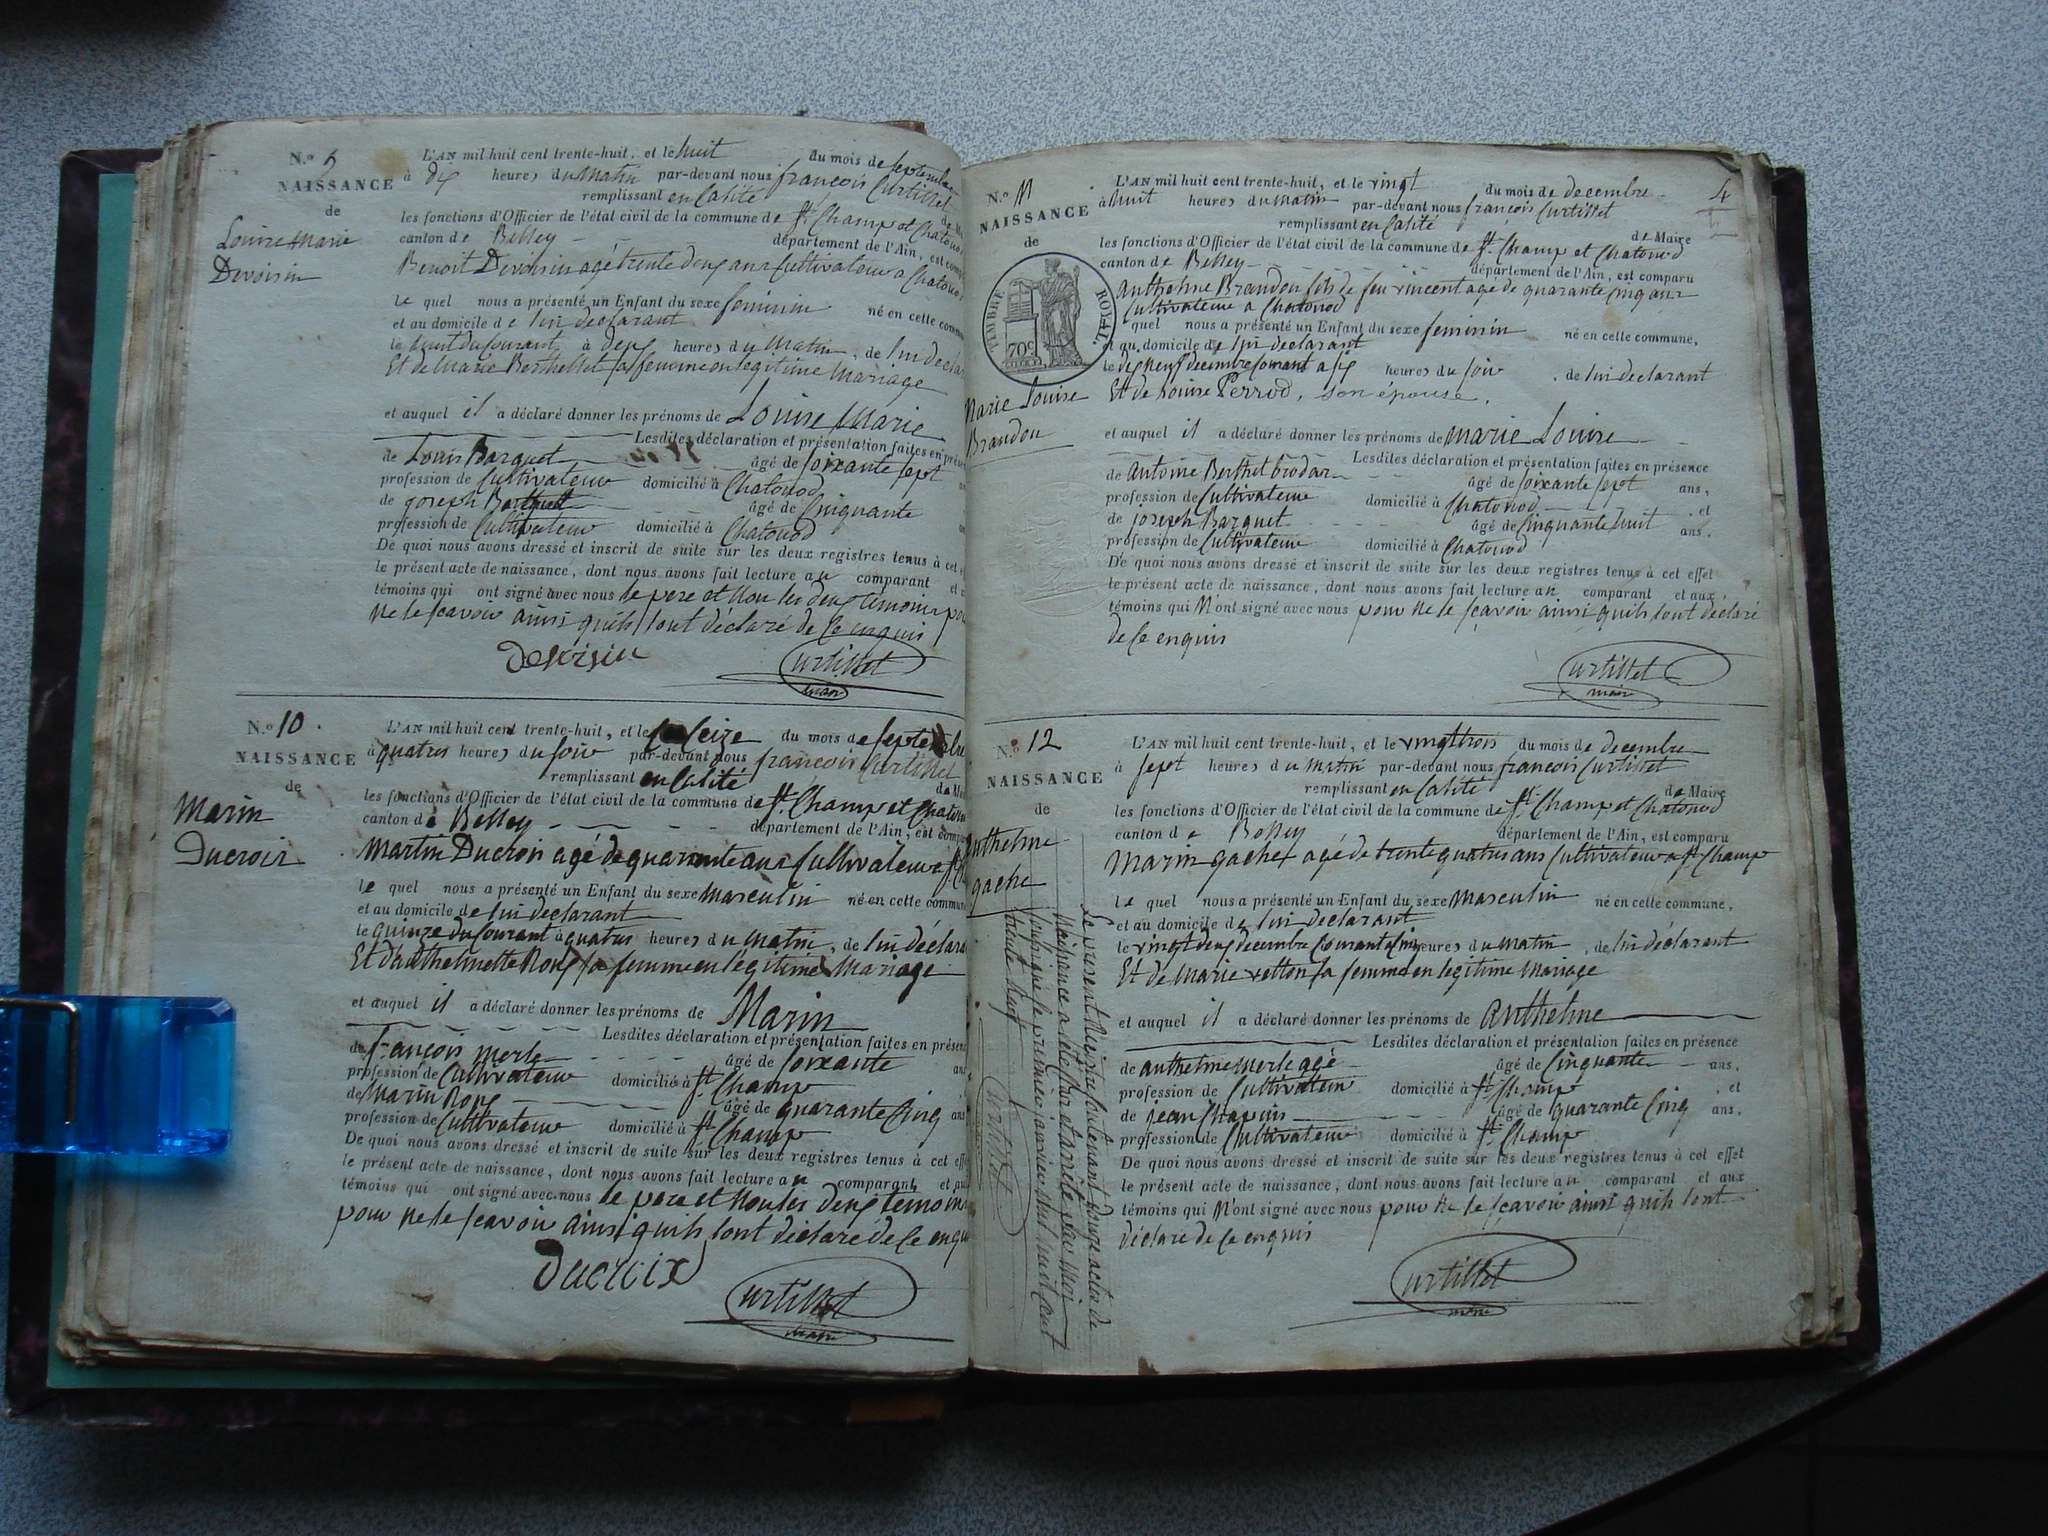 N.º
NAISSANCE
de
Louise Marie
Devoisin
L'AN mil huit cent trente-huit, et le huit du mois de Septembre
à dix heures du Matin par-devant nous françois Curtillet
remplissant en Calité de
les fonctions d'Officier de l'état civil de la commune de St. Champ et Chatonod
canton de Belley département de l'Ain, est
Benoit Devoisin agé trente deux ans Cultivateur a Chatonod
le quel nous a présenté un Enfant du sexe feminin né en cette
et au domicile de lui declarant
le huit du Courant à deux heures du Matin, de lui
Et de Marie Berthellet sa femme en legitime Mariage
et auquel il a déclaré donner les prénoms de Louise Marie
Lesdites déclaration et présentation faites en
de Louis Barquet âgé de soixante sept
profession de Cultivateur domicilié à Chatonod
de joseph âgé de Cinquante
profession de Cultivateur domicilié à Chatonod
De quoi nous avons dressé et inscrit de suite sur les deux registres tenus à cet
le présent acte de naissance, dont nous avons fait lecture au comparant et
témoins qui ont signé avec nous le pere et Non les deux témoins
ne le scavoir ainsi quils lont declaré de ce enquis
Devoisin Curtillet
maire
N.º 10
NAISSANCE
de
Marin
Ducroix
L'AN mil huit cent trente-huit, et le Seize du mois de septembre
à quatres heures du soir par-devant nous francois Curtillet
remplissant en Calité de
les fonctions d'Officier de l'état civil de la commune de St. Champ et
canton de Belley département de l'Ain, est
Martin Ducroix agé de quarante ans Cultivateur a
le quel nous a présenté un Enfant du sexe Masculin né en cette commune
et au domicile de lui declarant
le quinze du Courant à quatres heures du Matin, de lui
Et d'authelmette Roux sa femme en legitime Mariage
et auquel il a déclaré donner les prénoms de Marin
Lesdites déclaration et présentation faites en
de françois Merle âgé de soixante
profession de Cultivateur domicilié à St. Champ
de Marin Roux âgé de quarante Cinq ans
profession de Cultivateur domicilié à St. Champ
De quoi nous avons dressé et inscrit de suite sur les deux registres tenus à cet
le présent acte de naissance, dont nous avons fait lecture au comparant et
témoins qui ont signé avec nous le pere et Non les deux temoins
pour ne le scavoir ainsi quils lont déclaré de ce
Ducroix Curtillet
maire
4
N.º 11
NAISSANCE
de
TIMBRE ROYAL
70c
Marie Louise
Brandon
L'AN mil huit cent trente-huit, et le vingt du mois de decembre
à huit heures du matin par-devant nous françois Curtillet
remplissant en Calité de Maire
les fonctions d'Officier de l'état civil de la commune de St. Champ et Chatonod
canton de Belley département de l'Ain, est comparu
Anthelme Brandon fils de feu vincent agé de quarante Cinq ans
Cultivateur a Chatonod
quel nous a présenté un Enfant du sexe feminin né en cette commune,
au domicile de lui declarant
le dixneuf decembre Courant a six heures du soir, de lui declarant
Et de Louise Perrod, son épouse.
et auquel il a déclaré donner les prénoms de Marie Louise
Lesdites déclaration et présentation faites en présence
de Antoine Berthet âgé de soixante sept ans,
profession de Cultivateur domicilié à Chatonod et
de joseph Barquet âgé de Cinquante huit ans,
profession de Cultivateur domicilié à Chatonod
De quoi nous avons dressé et inscrit de suite sur les deux registres tenus à cet effet
le présent acte de naissance, dont nous avons fait lecture au comparant et aux
témoins qui N'ont signé avec nous pour ne le scavoir ainsi quils lont déclaré
de ce enquis
Curtillet
maire
N.º 12
NAISSANCE
de
Anthelme
gache
L'AN mil huit cent trente-huit, et le vingttrois du mois de decembre
à sept heures du matin par-devant nous francois Curtillet
remplissant en Calité de Maire
les fonctions d'Officier de l'état civil de la commune de St. Champ et Chatonod
canton de Belley département de l'Ain, est comparu
Marin gachet agé de trente quatres ans Cultivateur a St. Champ
le quel nous a présenté un Enfant du sexe Masculin né en cette commune,
et au domicile de lui declarant
le vingt deux decembre Courant a Cinq heures du Matin, de lui déclarant
Et de Marie vetton sa femme en legitime Mariage
et auquel il a déclaré donner les prénoms de Anthelme
Lesdites déclaration et présentation faites en présence
de anthelme Merle agé âgé de Cinquante ans,
profession de Cultivateur domicilié à St. Champ et
de jean Chapuis âgé de quarante Cinq ans,
profession de Cultivateur domicilié à St. Champ
De quoi nous avons dressé et inscrit de suite sur les deux registres tenus à cet effet
le présent acte de naissance, dont nous avons fait lecture au comparant et aux
témoins qui N'ont signé avec nous pour ne le scavoir ainsi quils lont
déclare de ce enquis
Curtillet
maire
Le present Registre Contenant douze actes de
Naissance a été Clos et arrêté par Moi
soussigné le premier janvier Mil huit Cent
trente Neuf
Curtillet